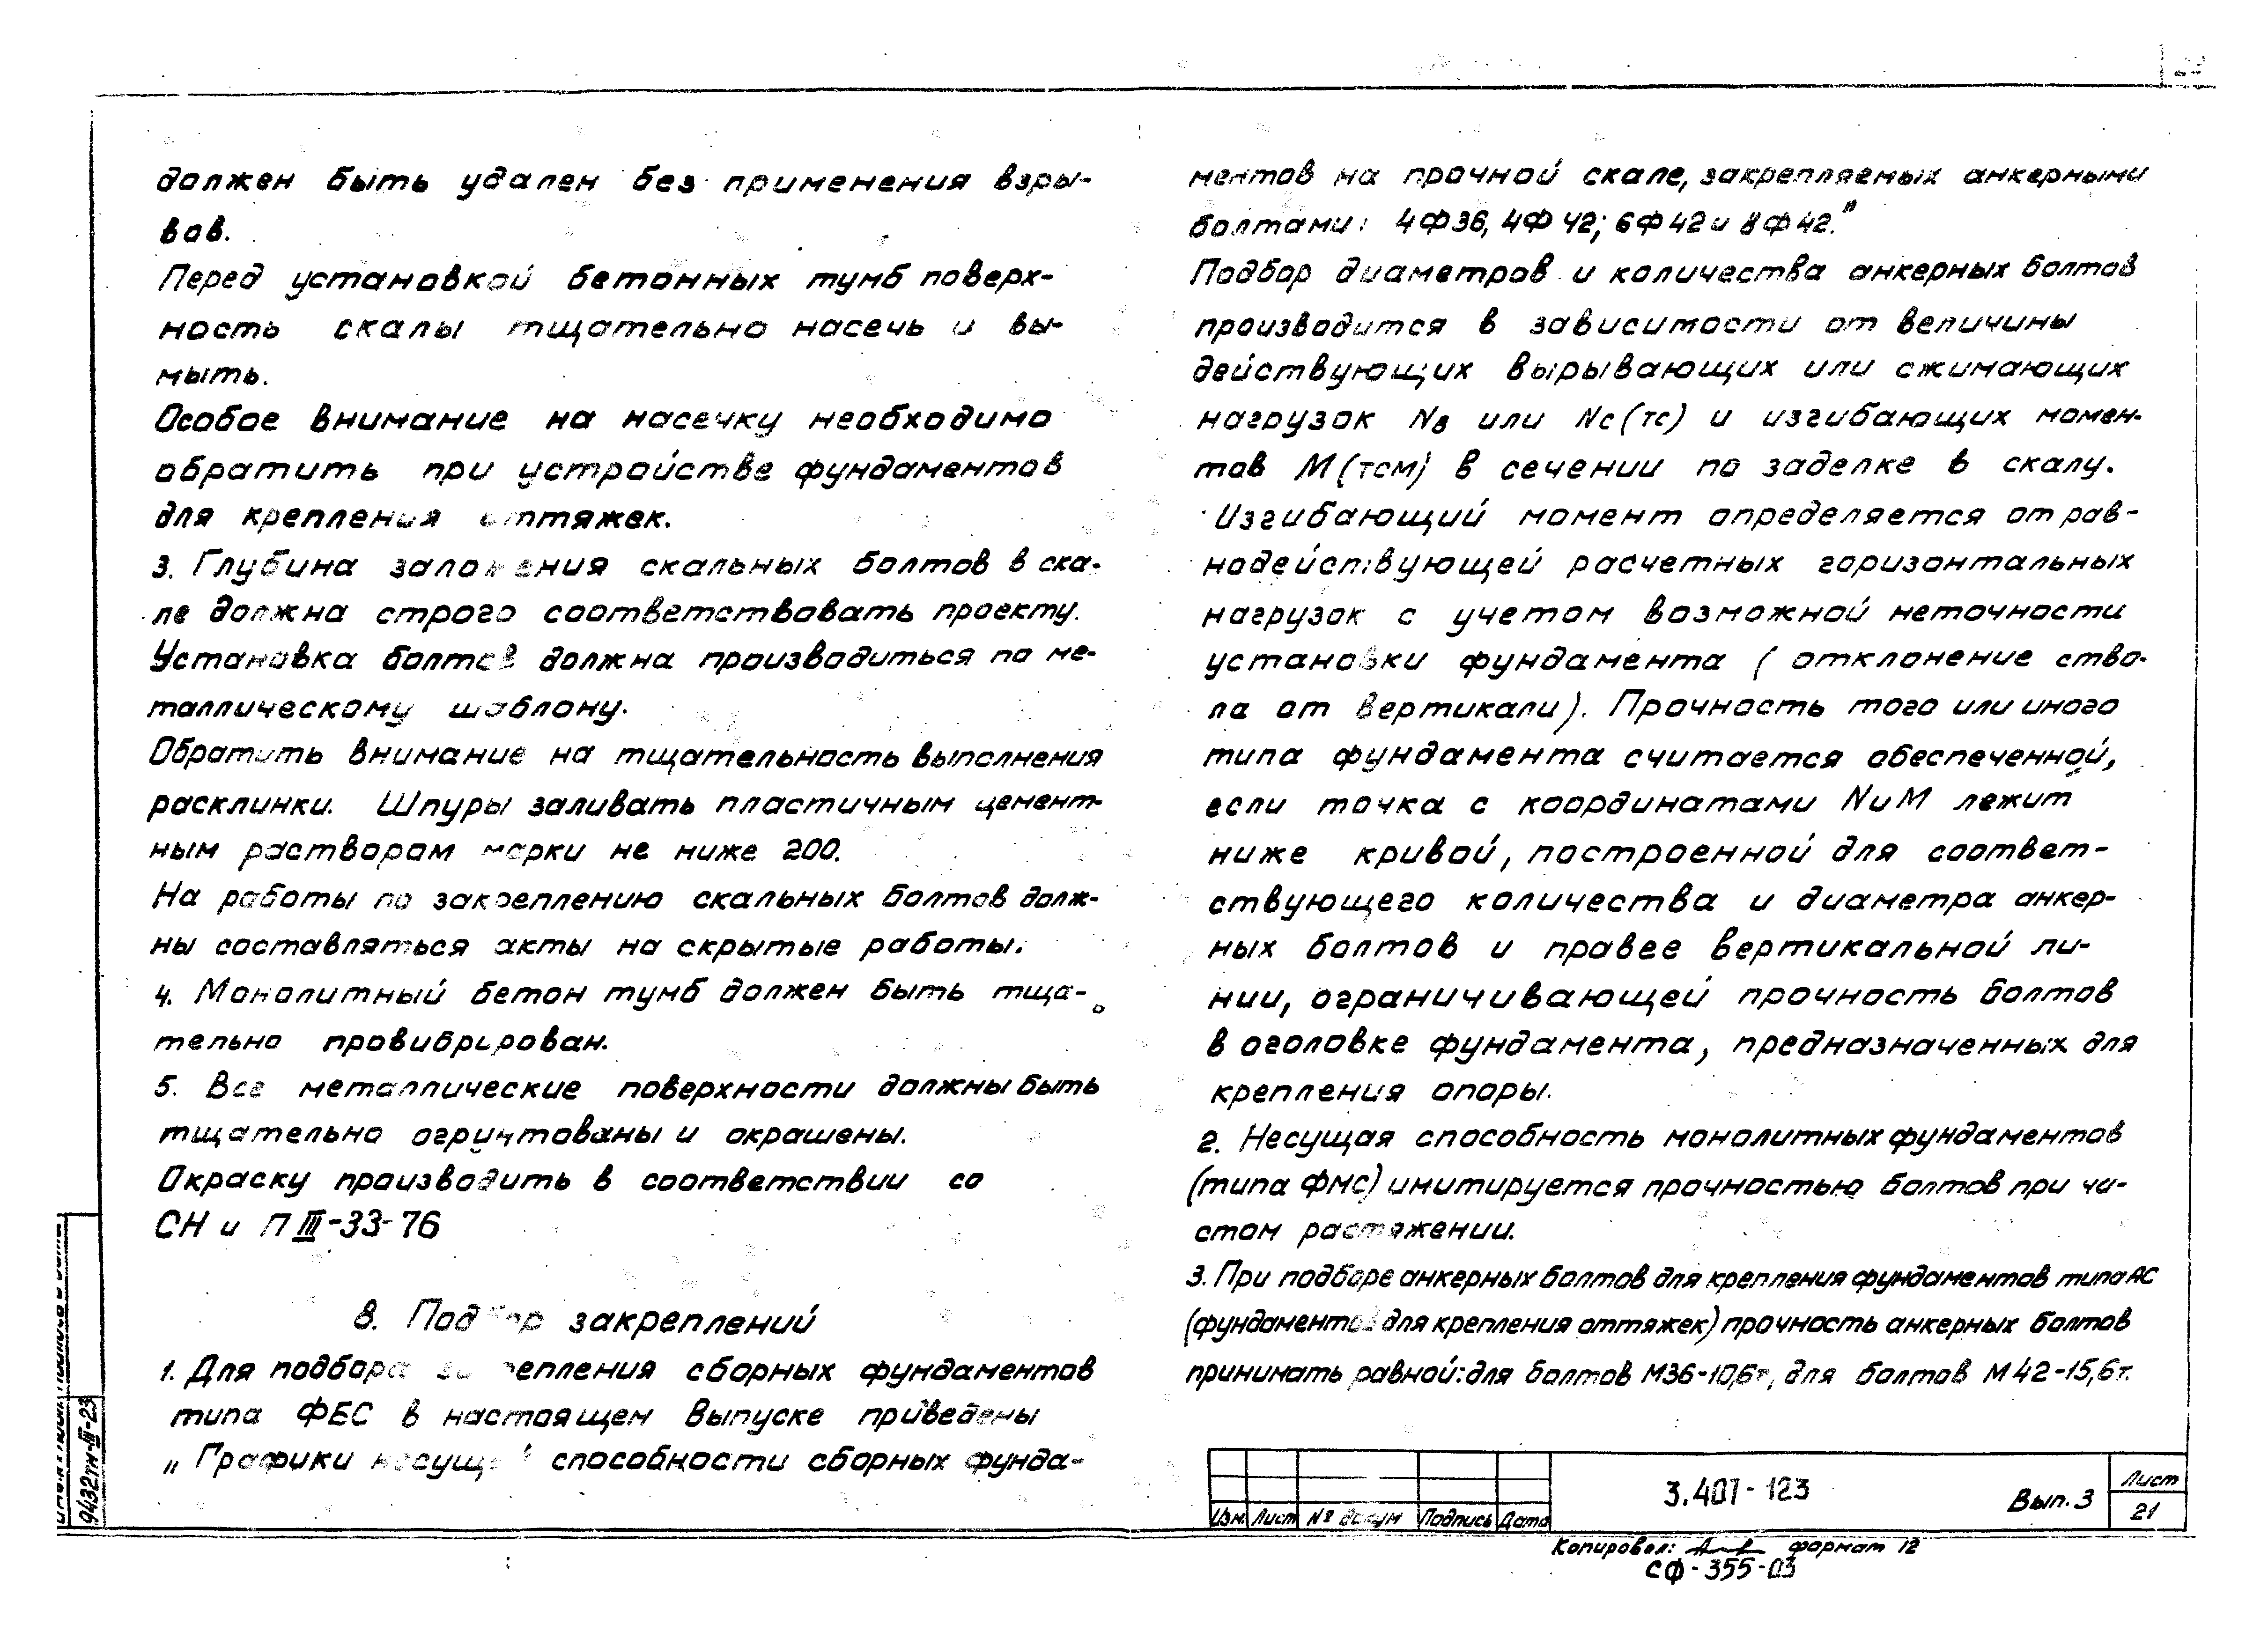 должен быть удален без применения взры-
вов.
Перед установкой бетонных тумб поверх-
ность скалы тщательно насечь и вы-
мыть.
Особое внимание на насечку необходимо
обратить при устройстве фундаментов
для крепления оттяжек.
3. Глубина заложения скальных болтов в ска-
ле должна строго соответствовать проекту.
Установка болтов должна производиться по ме-
таллическому шаблону.
Обратить внимание на тщательность выполнения
расклинки. Шпуры заливать пластичным цемент-
ным раствором марки не ниже 200.
На работы по закреплению скальных болтов долж-
ны составляться акты на скрытые работы.
4. Монолитный бетон тумб должен быть тща-
тельно провибрирован.
5. Все металлические поверхности должны быть
тщательно огрунтованы и окрашены.
Окраску производить в соответствии со
СН и П III-33-76
в. Подбор закреплений
1. Для подбора закрепления сборных фундаментов
типа ФБС в настоящем Выпуске приведены
„Графики несущей способности сборных фунда-
ментов на прочной скале, закрепляемых анкерными
болтами: 4Ф36, 4Ф42; 6Ф42 и 8Ф42."
Подбор диаметров и количества анкерных болтов
производится в зависимости от величины
действующих вырывающих или сжимающих
нагрузок Nв или Nс (тс) и изгибающих момен-
тов М (тсм) в сечении по заделке в скалу.
Изгибающий момент определяется от рав-
нодействующей расчетных горизонтальных
нагрузок с учетом возможной неточности
установки фундамента ( отклонение ство-
ла от вертикали). Прочность того или иного
типа фундамента считается обеспеченной,
если точка с координатами N и М лежит
ниже кривой, построенной для соответ-
ствующего количества и диаметра анкер-
ных болтов и правее вертикальной ли-
нии, ограничивающей прочность болтов
в оголовке фундамента, предназначенных для
крепления опоры.
2. Несущая способность монолитных фундаментов
(типа ФМС) имитируется прочностью болтов при чи-
стом растяжении.
3. При подборе анкерных болтов для крепления фундаментов типа АС
(фундаментов для крепления оттяжек) прочность анкерных болтов
принимать равной: для болтов М36-10,6т, для болтов М42-15,6т.
9432тм-III-23
Изм. Лист № докум Подпись Дата
3.407-123 Вып. 3
Лист
21
Копировал: формат 12
СФ-355-03